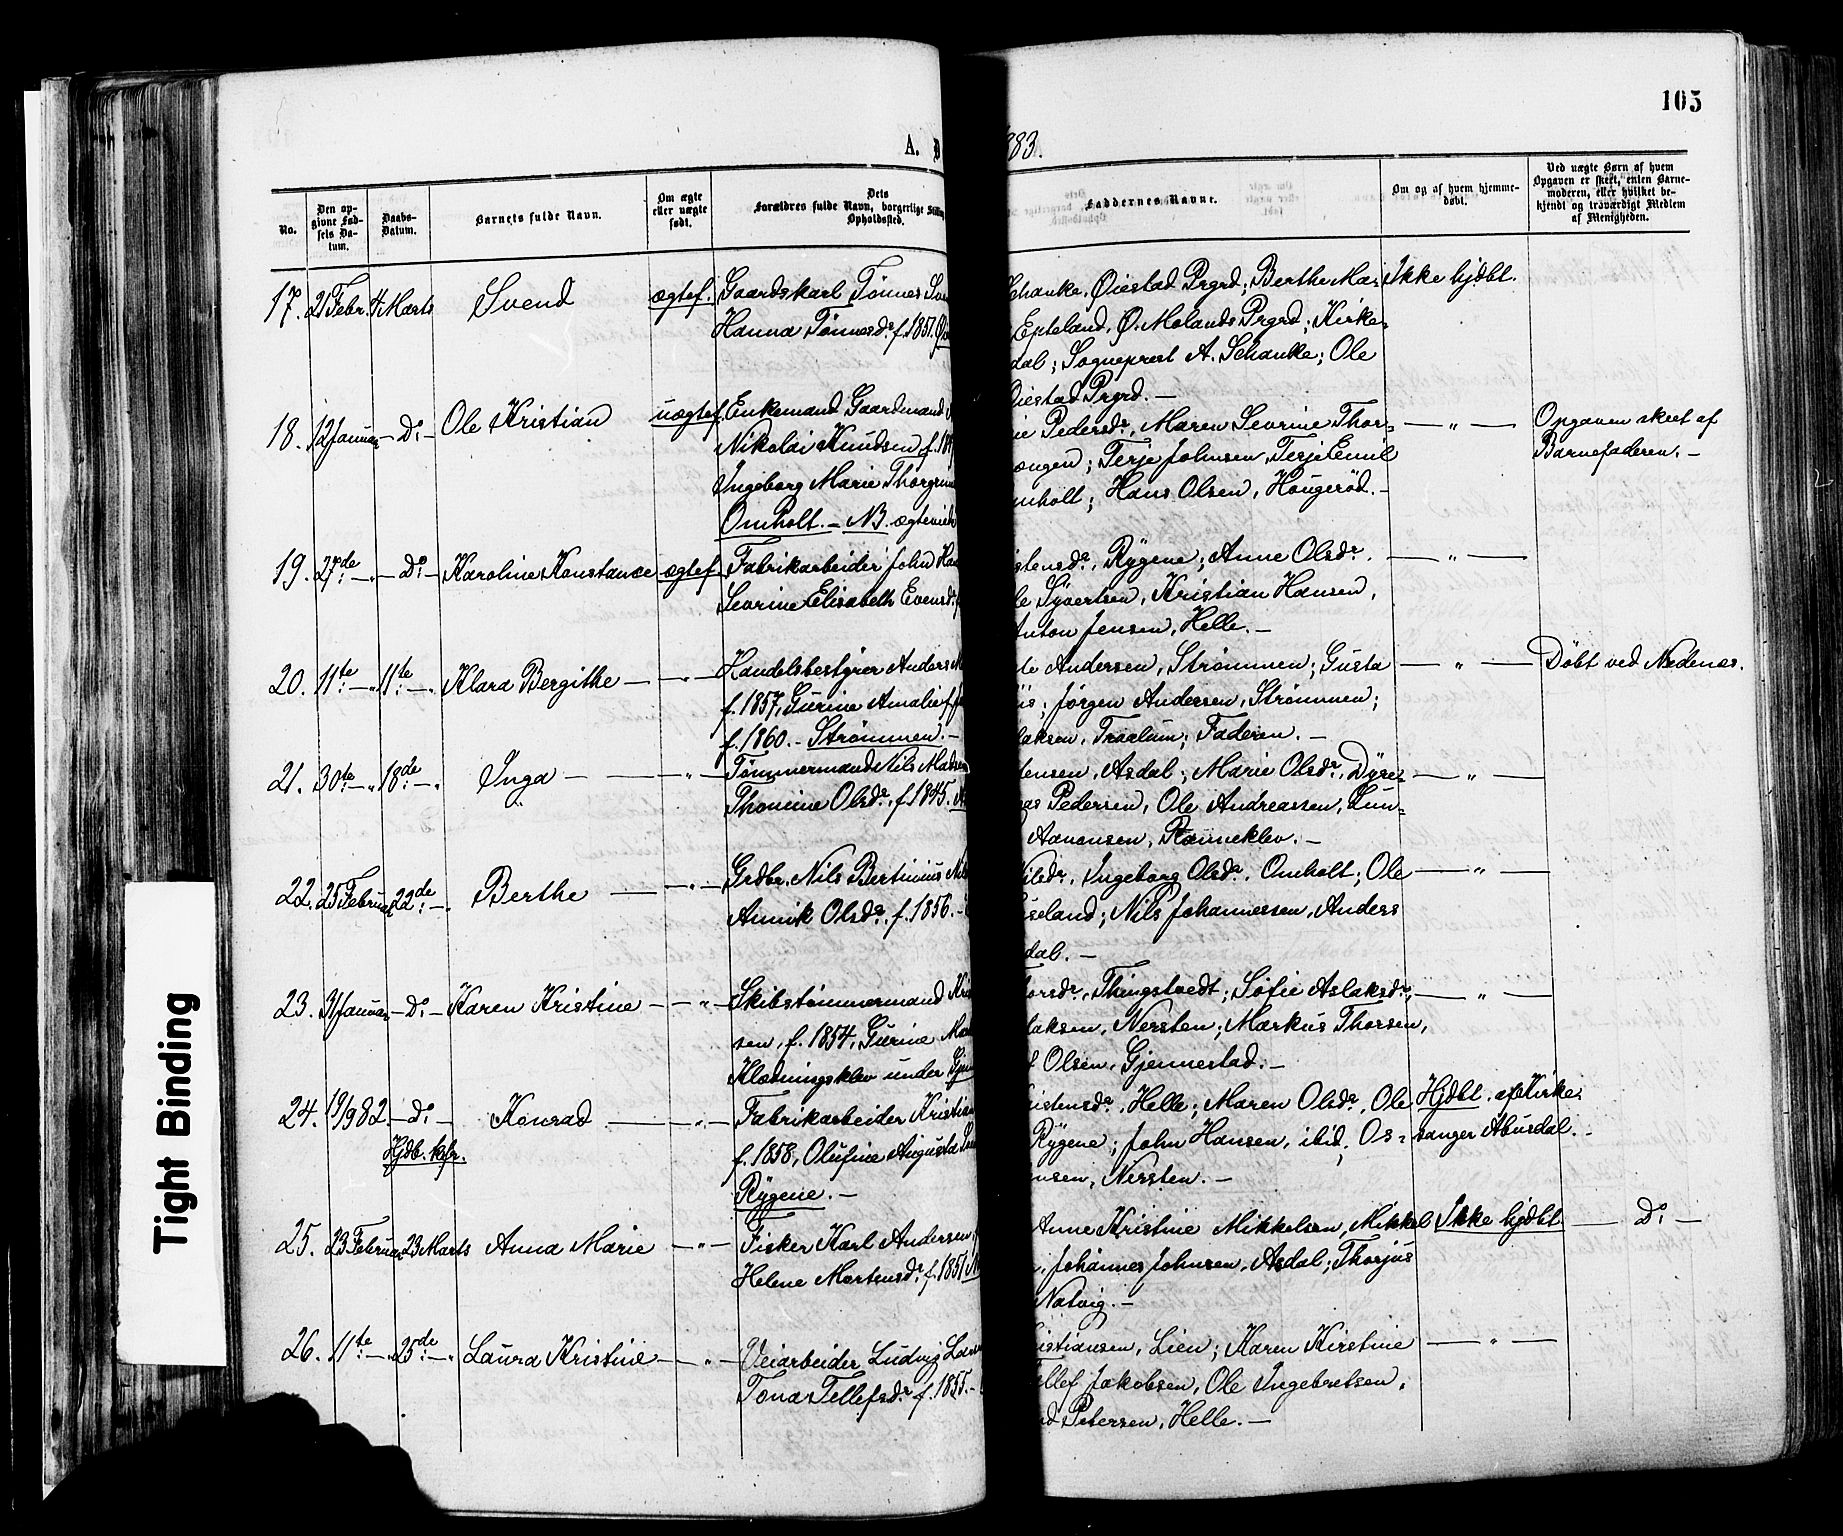 105
A. D 883.
No.
Den op-
givne Fød-
sels Da-
tum.
Daabs-
Datum.
Barnets fulde Navn.
Om ægte
eller uægte
født.
Dets
Forældres fulde Navn, borgerlige Stilling
Opholdssted.
Faddernes Navne.
Om og af hvem hjemme-
døbt.
Ved uægte Børn af hvem
Opgaven er skeet, enten Barne-
moderen, eller hvilket be-
kjendt og troværdigt Medlem
af Menigheden.
17. 21 Febr. 4 Marts Svend ægtef. Gaardskarl Tønnes Sve
Hanna Tønnesdr. f. 1851.
Schanke, Øiestad Prgrd; Berthe Mar Ikke hjdbt.
Epteland, Ø. Molands Prgrd; Kirke-
dal; Sogneprest A. Schanke; Ole
Øiestad Prgrd. –
18. 12 Januar – Do – Ole Kristian uægtef. Enkemand Gaardmand
Nikolai Knudsen f. 18
Ingeborg Marie Thorgrim
Omholt. – NB. ægtevied
ie Pedersdr, Maren Severine Thor- — " — Opgaven skeet af
ongen; Terje Johnsen, Terje Emil Barnefaderen. –
mholt; Hans Olsen, Hougerød. –
19. 27de – " – Do – Karoline Konstance ægtef. Fabrikarbeider John Han
Sevrine Elisabeth Evensdr.
stensdr, Rygene; Anne Olsdr. — " —
le Syvertsen, Kristian Hansen,
Anton Jensen, Helle. –
20. 11te – " 11te – " Klara Bergithe — " — Handelsbestyrer Anders
f. 1857, Gurine Amalie
f. 1860. – Strømmen. –
te Andersen, Strømmen; Gusta — " — Døbt ved Nedenæs.
is; Jørgen Andersen, Strømmen;
laksen, Traalum; Faderen. –
21. 30te – " 18de – " Inga — " — Tømmermand Nils Mads
Thomine Olsdr. f. 1845.
tensen, Asdal; Marie Olsdr. Dyre- — " —
as Pedersen, Ole Andreassen, Lun-
Aanonsen, Rønneklev. –
22. 25 Februar 22de – " Berthe — " — Grdbr. Nils Bertinius Nils
Annik Olsdr. f. 1856. –
Nilsdr. Ingeborg Olsdr. Omholt; Ole — " —
seland; Nils Johannessen, Anders
dal. –
23. 31 Januar – Do – Karen Kristine — " — Skibstømmermand Kris
sen, f. 1854, Gurine
Klædningsklev under Gjen
orsdr, Thingstvedt; Sofie Aslaksdr, — " —
laksen, Nersten; Markus Thorsen,
f Olsen, Gjennestad. –
24. 19/9 82 – Do – Konrad — " — Fabrikarbeider Kristian
Hjdb. kfr.
f. 1858, Olufine Augusta
Rygene. –
istensdr, Helle; Maren Olsdr. Ole Hjdbt af Kirke-
Rygene; John Hansen, ibid, Os- sanger Abusdal. –
nsen, Nersten. –
25. 23 Februar 23 Marts Anna Marie — " — Fisker Karl Andersen
Helene Mortensdr. f. 1851
Anne Kristine Mikkelsen, Mikkel Ikke hjdbt — Do –
, Johannes Johnsen, Asdal; Thorjus
Natvig. –
26. 11te – " 25de – " Laura Kristine — " — Veiarbeider Ludvig
Tona Tellefsdr. f. 1855. –
istiansen, Lien; Karen Kirstine — " —
ellef Jakobsen, Ole Ingebretsen,
d Petersen, Helle. –
Tight Binding